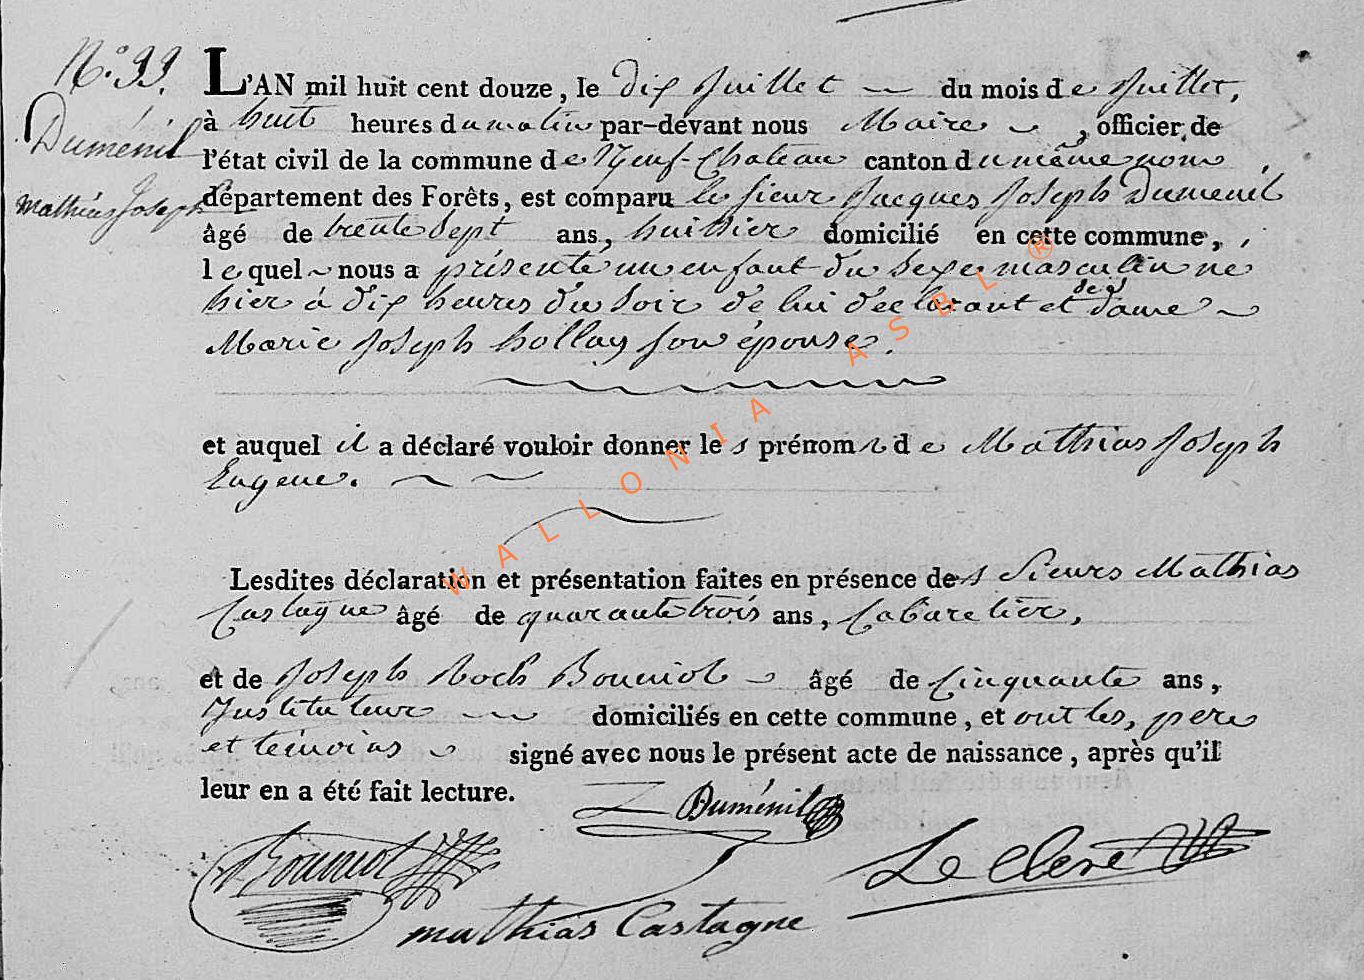 N.° 33.
Duménil
Mathias Joseph
L'AN mil huit cent douze, le dix Juillet du mois de Juillet,
à huit heures du matin par-devant nous Maire, officier de
l'état civil de la commune de Neuf-Chateau canton du même nom,
département des Forêts, est comparu le sieur Jacques Joseph Dumenil
âgé de trente sept ans, huissier domicilié en cette commune,
lequel nous a présenté un enfant du sexe masculin né
hier à dix heures du soir de lui déclarant et de dame
Marie Joseph hollay son épouse.
et auquel il a déclaré vouloir donner les prénoms de Mathias Joseph
Eugene.
Lesdites déclaration et présentation faites en présence des Sieurs Mathias
Castagne âgé de quarante trois ans, Cabaretier,
et de Joseph Roch Bouniol âgé de Cinquante ans,
Instituteur domiciliés en cette commune, et ont les, pere
et témoins signé avec nous le présent acte de naissance, après qu'il
leur en a été fait lecture.
Duménil
Bouniol
Le Clerc
mathias Castagne
WALLONIA ASBL ®